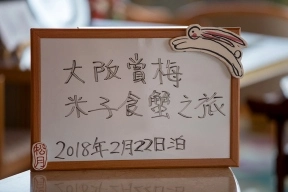 大阪賞梅
米子食蟹之旅
2018年2月22日泊
皆月